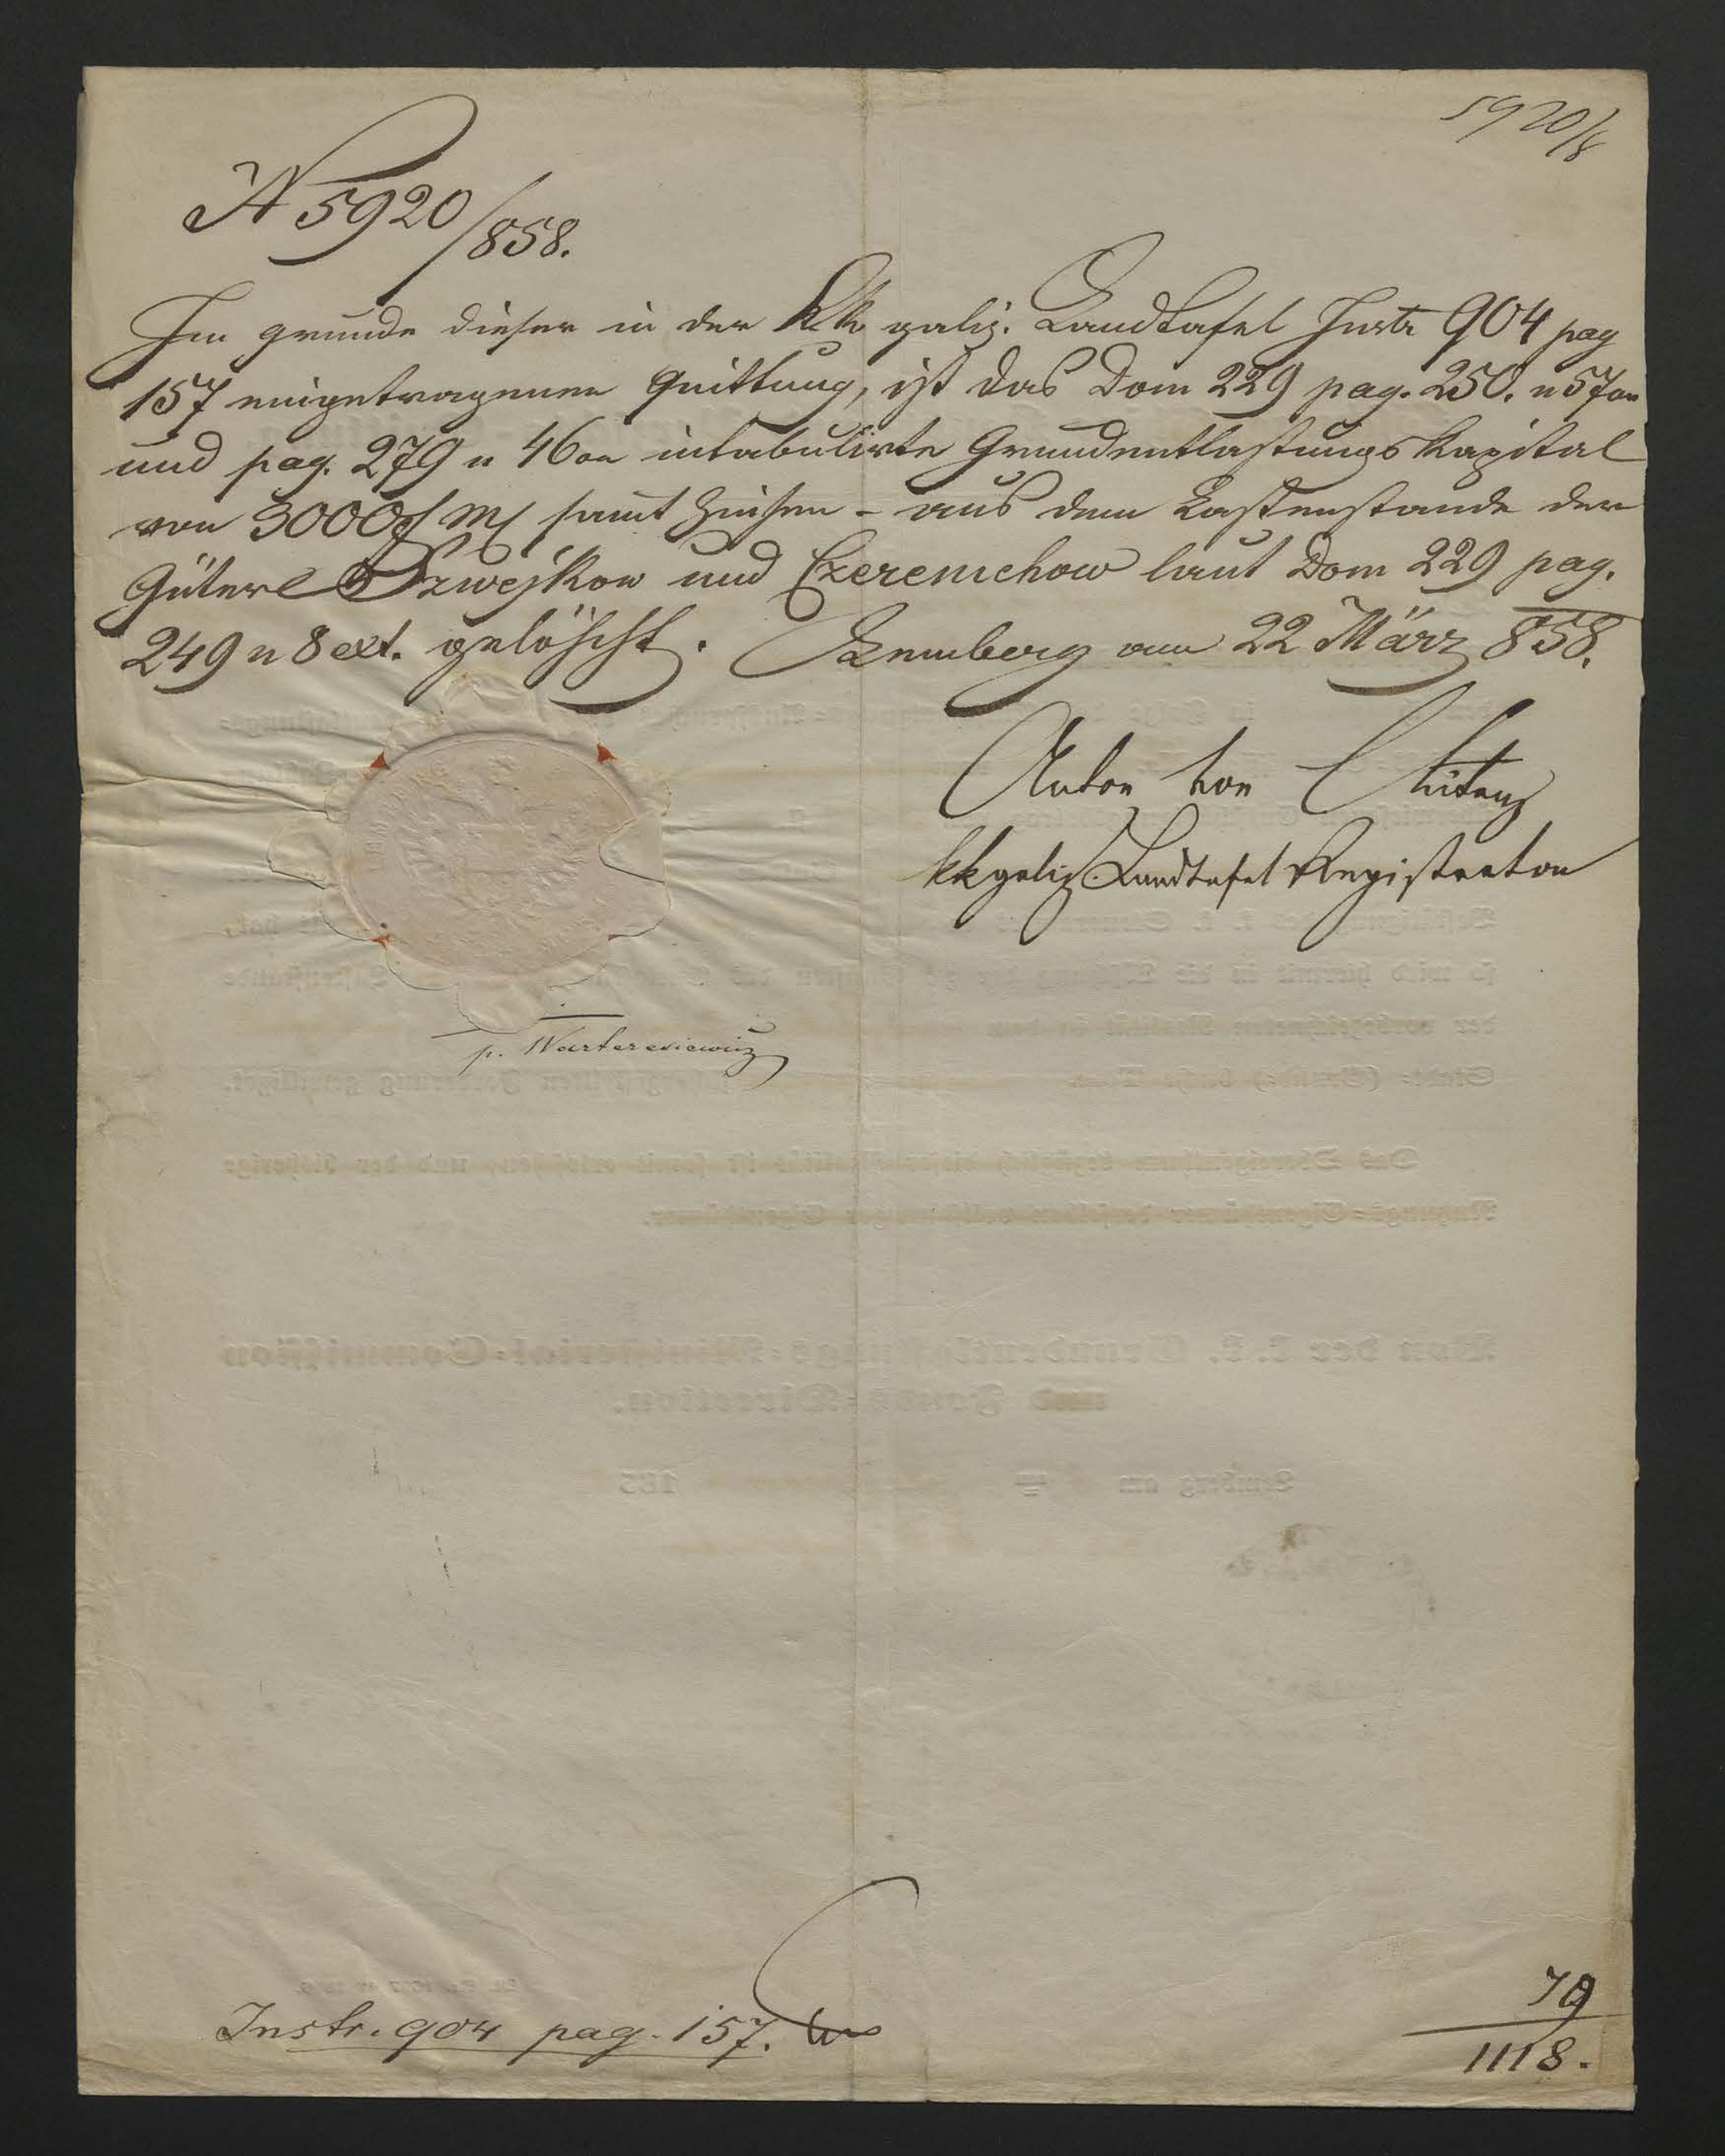 5920/8
N 5920/858.
Im grunde dieser in der kk galiz. Landtafel Instr 904 pag
157 eingetragenen Quittung, ist das Dom 229 pag. 250. n 57 on
und pag. 279 n 46 on intabulirte Grundentlastungs Kapital
von 3000 f Mz samt Zinsen - aus dem Lastenstande der
Güter Szwejkow und Czeremchow laut Dom 229 pag.
249 n 8 ext. gelöscht. Lemberg am 22 März 858.
Anton von
kk galiz. Landtafel Registrator
p. Warteresiewicz
Instr. 904 pag. 157.
79
1118.